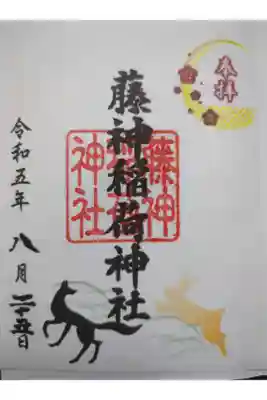 奉拝
藤神稲荷神社
藤神稲荷神社
令和五年八月二十五日